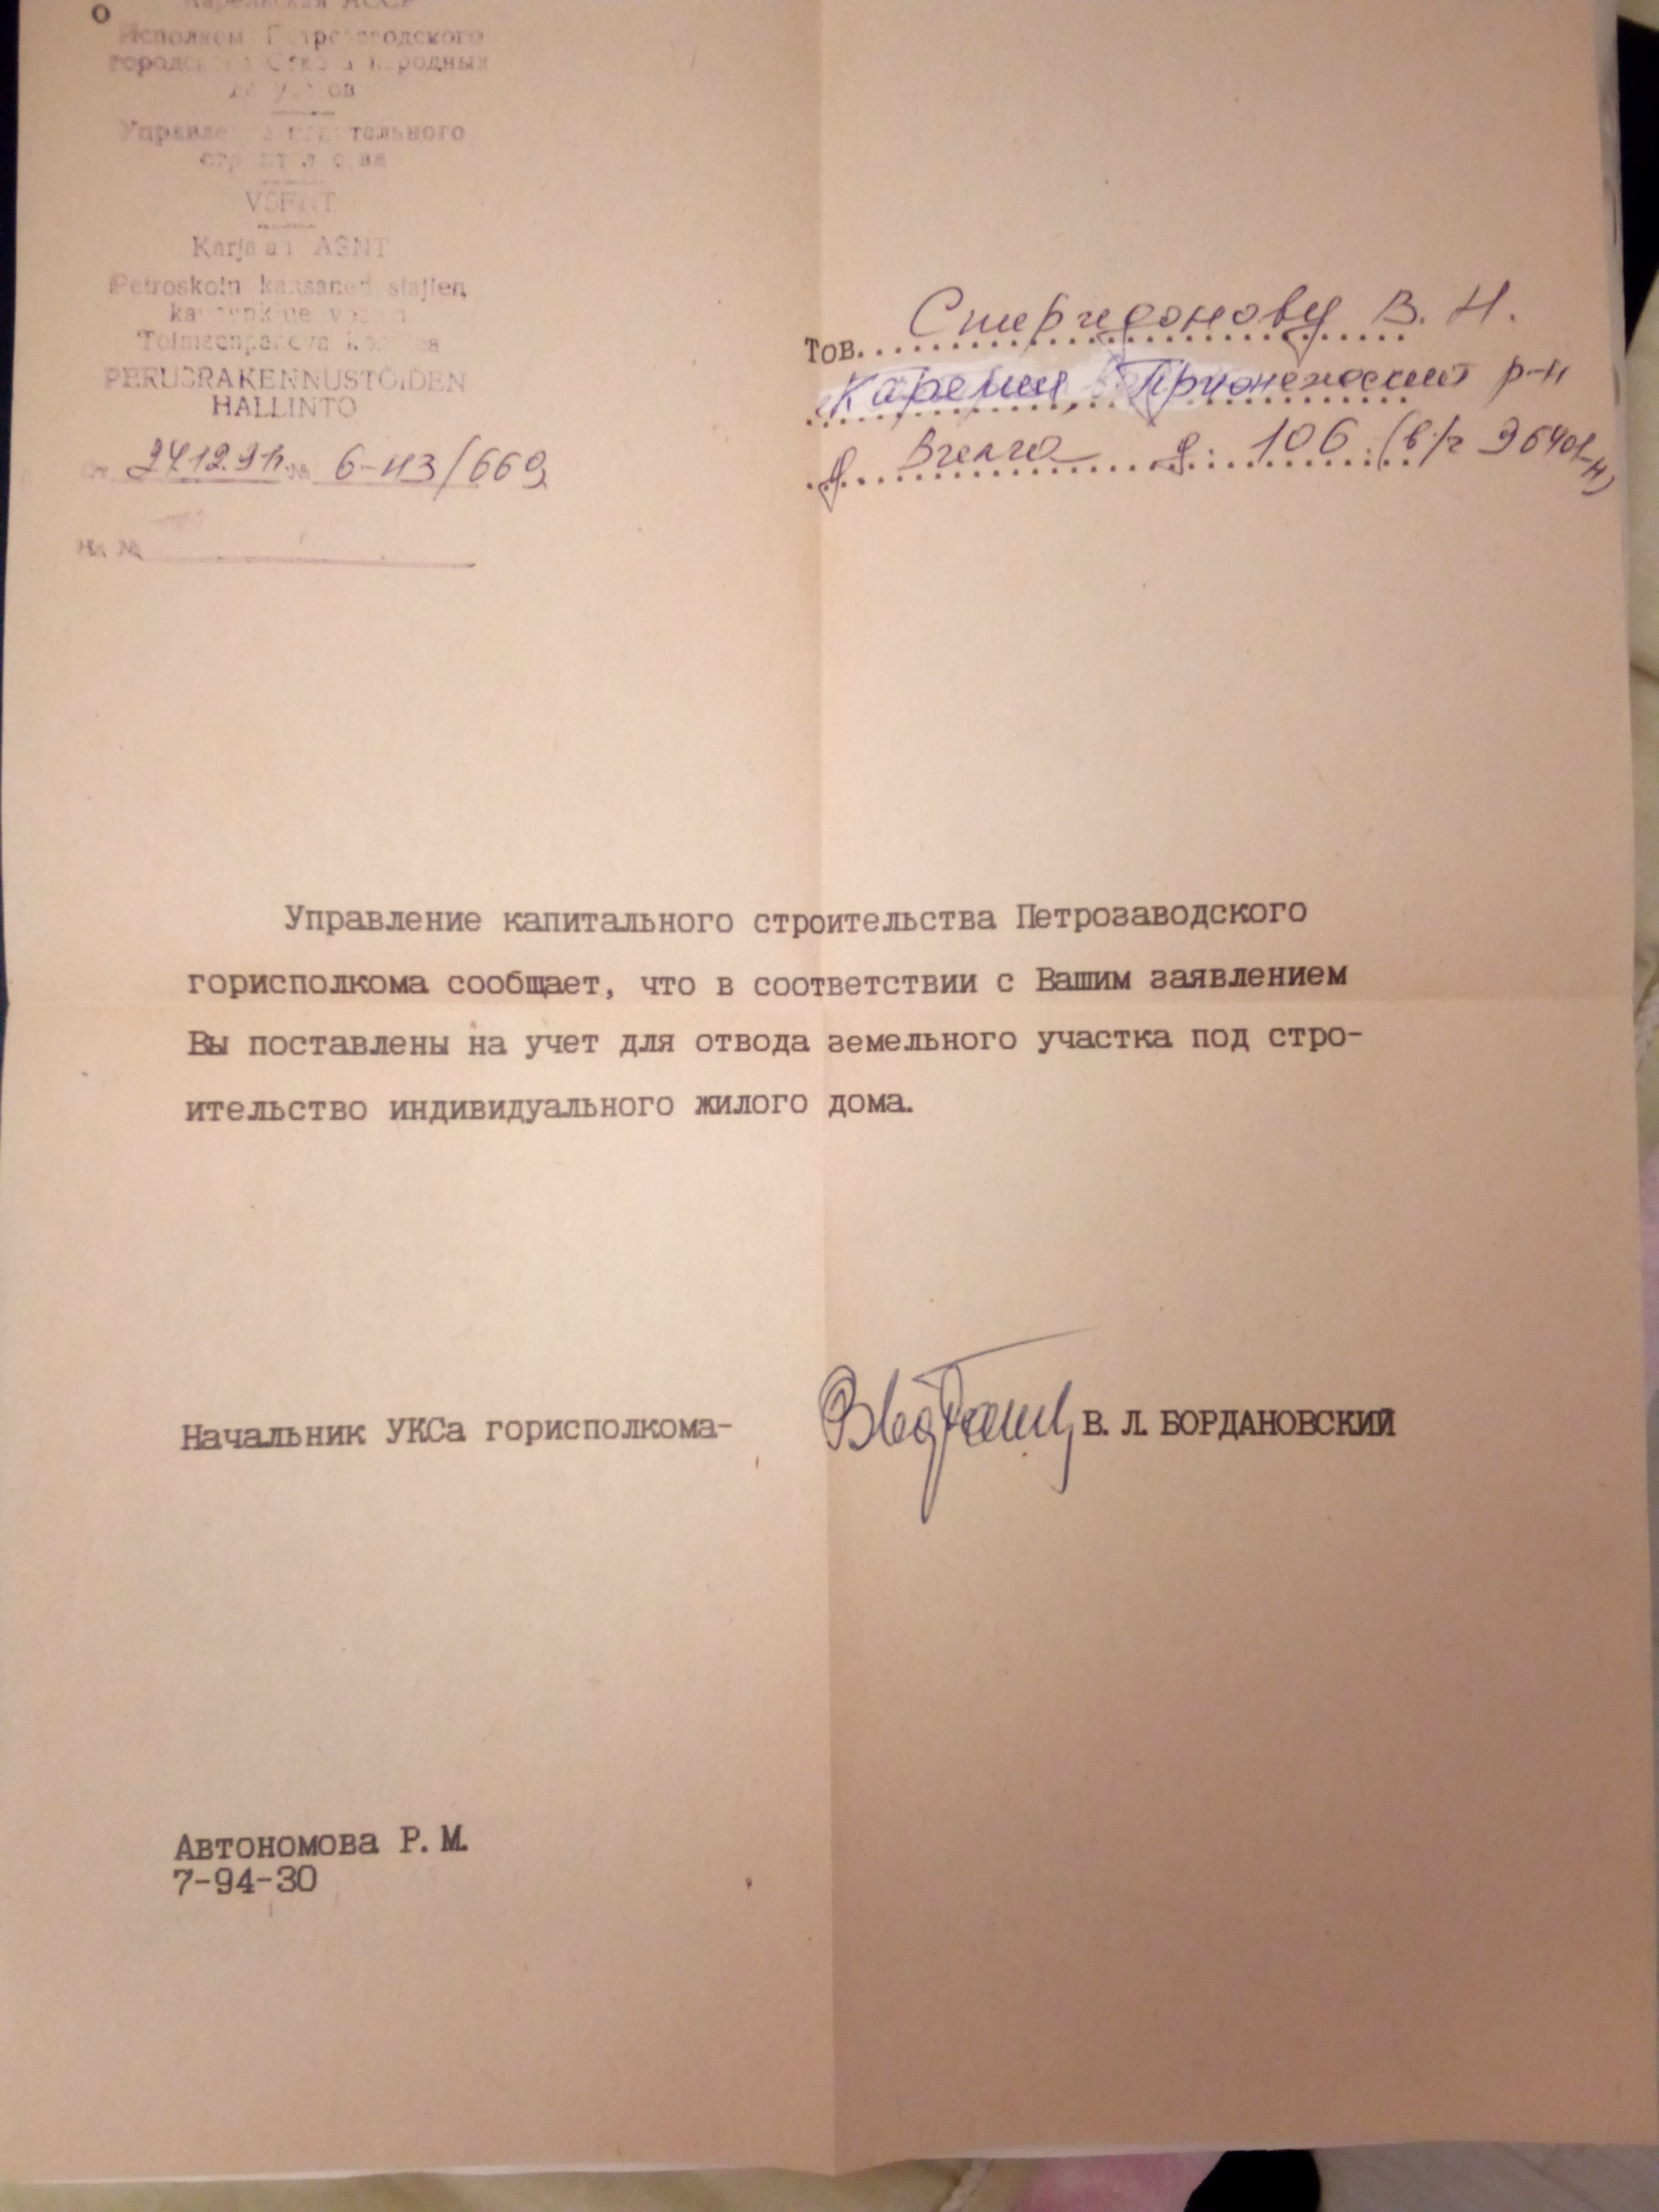 Карельская АССР
Исполком Петрозаводского
городского Совета народных
Управление капитального
строительства
VSFNT
Karjalan ASNT
Petroskoin kansanedustajien
PERUSRAKENNUSTÖIDEN
HALLINTO
От 24.12.91г. № 6-ИЗ/669
На №
Тов. Спиридонову В. Н.
Карелия, Прионежский р-н
Вилга д. 106 (в/ч 96401-Н)
Управление капитального строительства Петрозаводского
горисполкома сообщает, что в соответствии с Вашим заявлением
Вы поставлены на учет для отвода земельного участка под стро-
ительство индивидуального жилого дома.
Начальник УКСа горисполкома- В. Л. БОРДАНОВСКИЙ
Автономова Р. М.
7-94-30